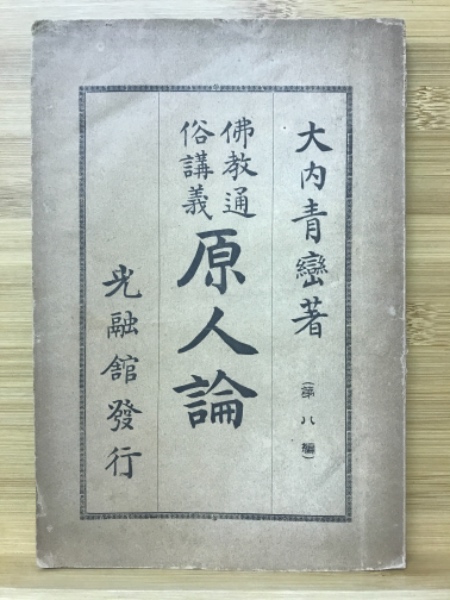 大内青巒著
(第八編)
佛教通
俗講義
原人論
光融館發行